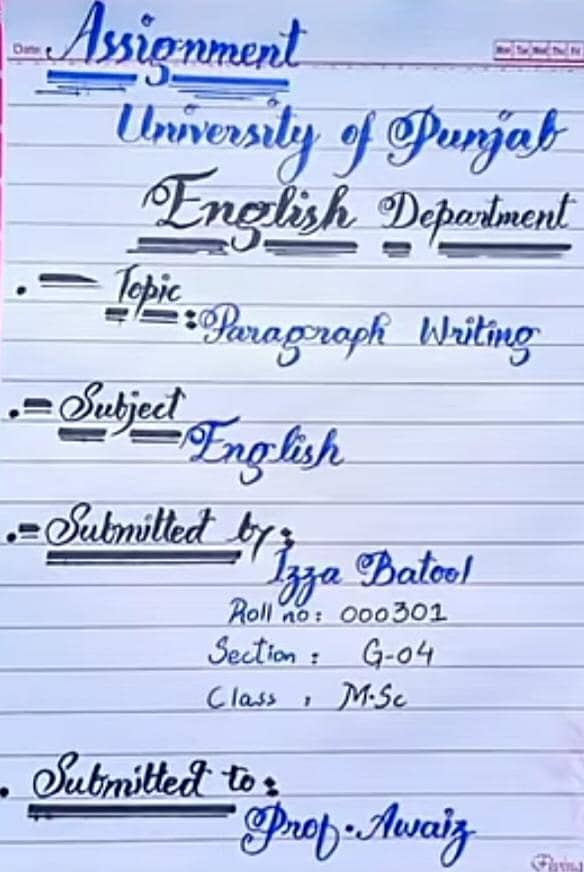 Date:
Mon Tue Wed Thu Fri
Assignment
University of Punjab
English Department
Topic
:Paragraph Writing
Subject
English
Submitted by:
Izza Batool
Roll no: 000301
Section : G-04
Class : M.Sc
Submitted to:
Prof. Awaiz